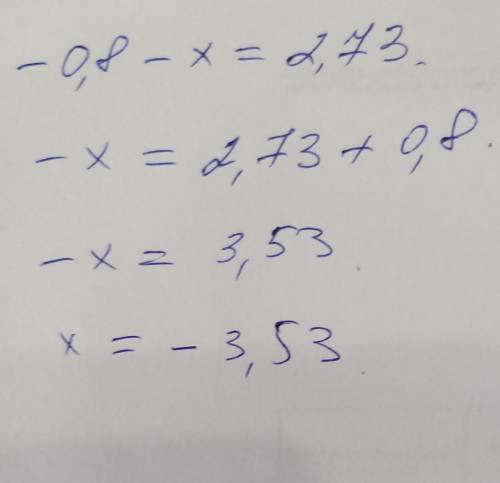 -0,8 - x = 2,73.
-x = 2,73 + 0,8.
-x = 3,53
x = -3,53.